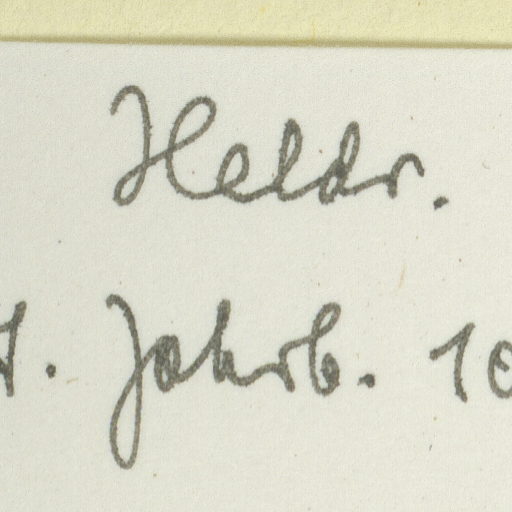 Heldr.
. Jahrb. 10